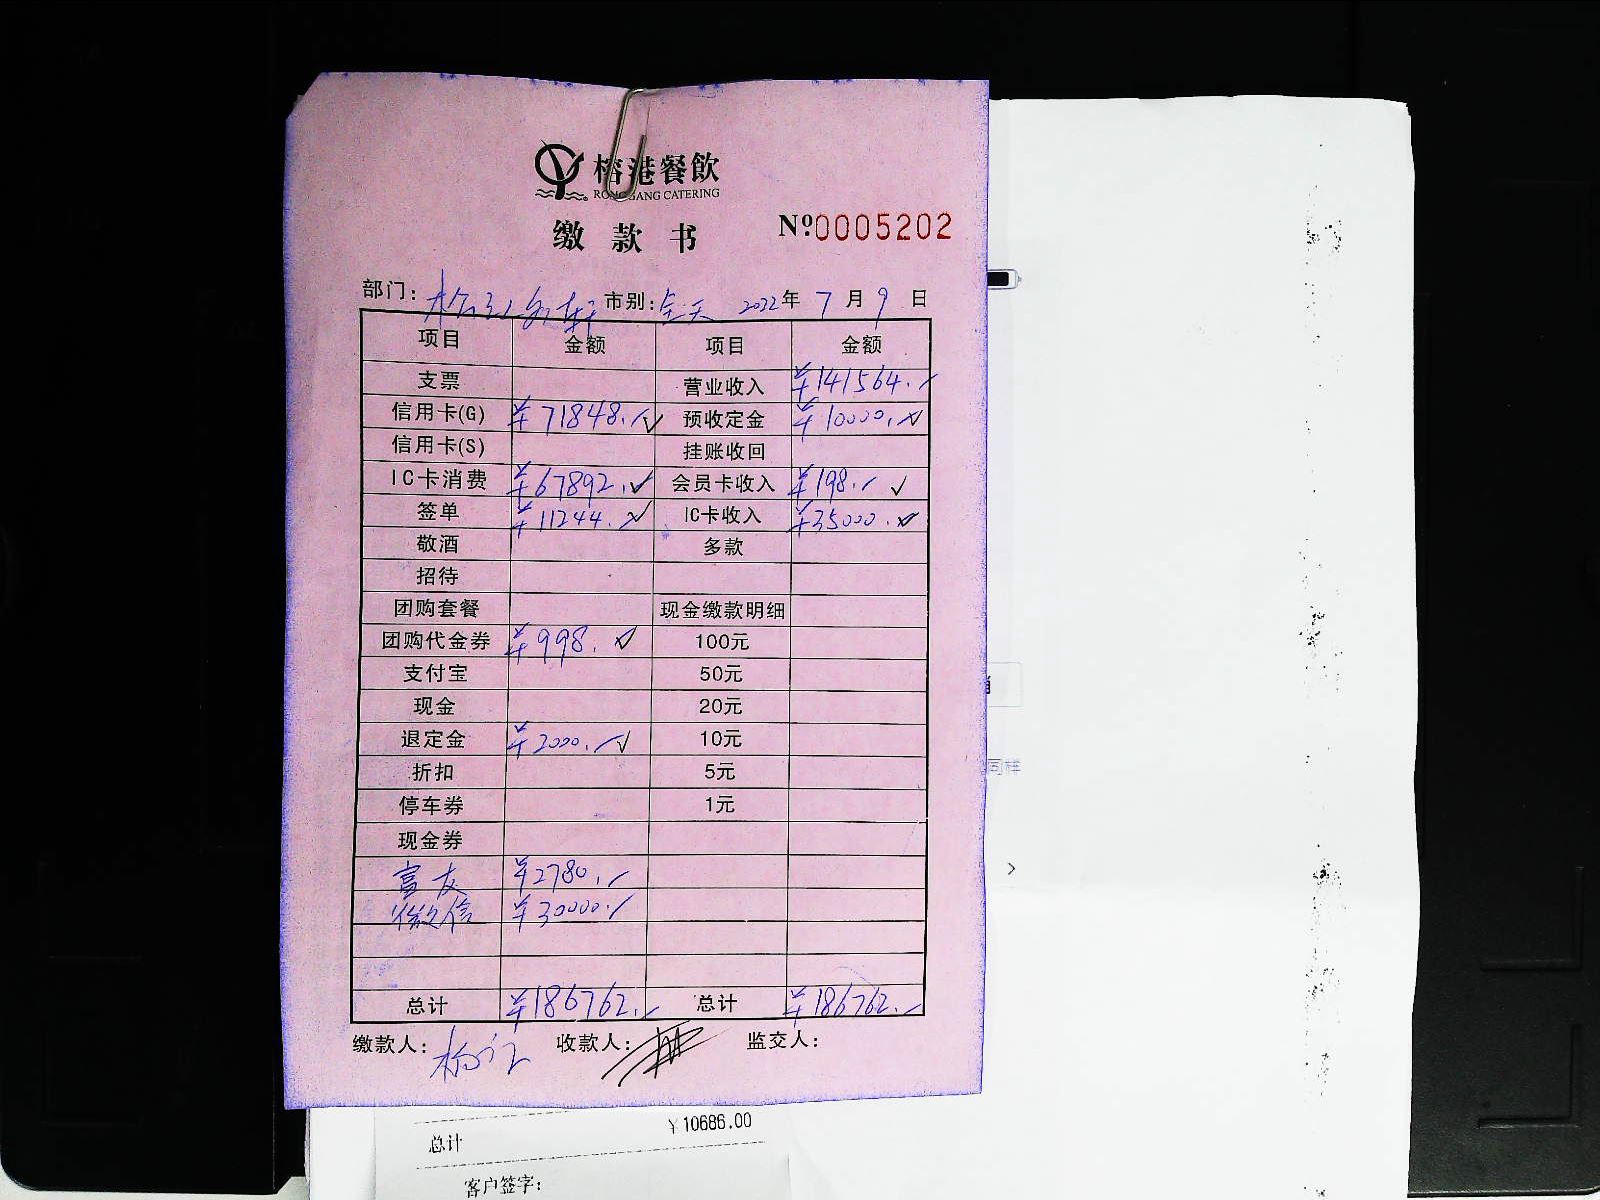 榕港餐飲
RONGGANG CATERING
缴款书 №0005202
部门: 市别:全天 2022年7月9日
项目 金额 项目 金额
支票 营业收入 ¥141564.
信用卡(G) ¥71848. 预收定金 ¥10000.
信用卡(S) 挂账收回
IC卡消费 ¥67892. 会员卡收入 ¥198.
签单 ¥11244. IC卡收入 ¥35000.
敬酒 多款
招待
团购套餐 现金缴款明细
团购代金券 ¥998. 100元
支付宝 50元
现金 20元
退定金 ¥2000. 10元
折扣 5元
停车券 1元
现金券
富友 ¥2780.
微信 ¥30000.
总计 ¥186762. 总计 ¥186762.
缴款人: 收款人: 监交人:
同样
总计 ¥10686.00
客户签字: